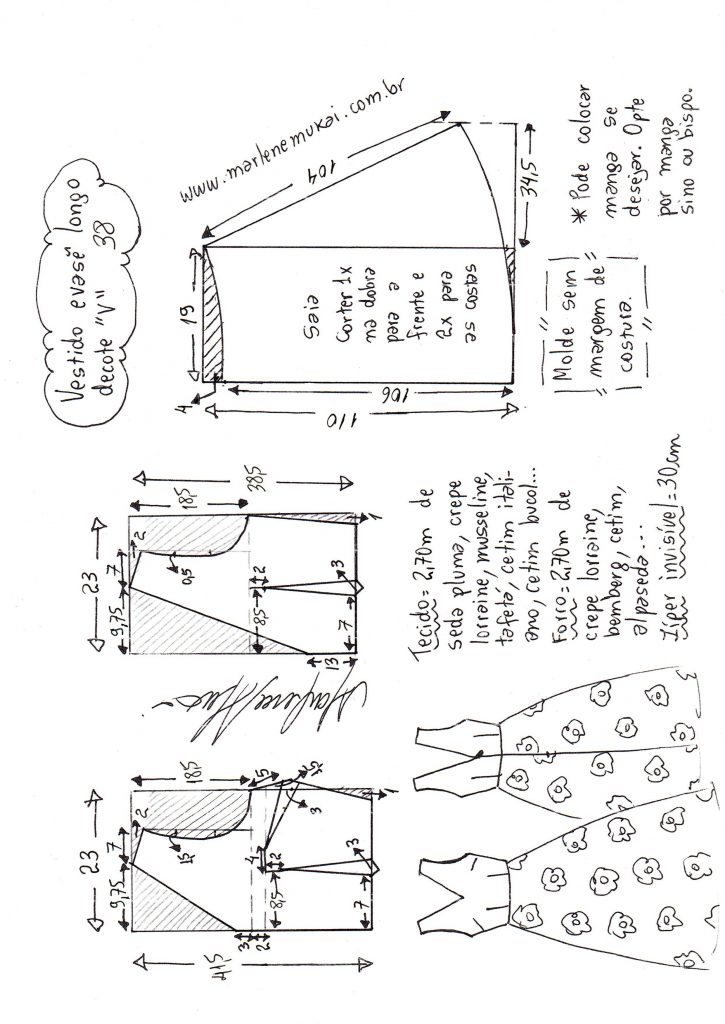 Vestido evasê longo
decote "V" 38
www.marlenemukai.com.br
23
9,75
7
2
18,5
1,5
5
3,5
3
4
2
8,5
3
2
7
3
1
41,5
23
9,75
7
2
18,5
38,5
0,5
2
8,5
13
7
3
1
19
4
104
110
106
34,5
Saia
Cortar 1x
na dobra
para a
frente e
2x para
as costas
Molde sem
margem de
costura.
* Pode colocar
manga se
desejar. Opte
por manga
sino ou bispo.
Tecido = 2,70m de
seda pluma, crepe
lorraine, musseline,
tafetá, cetim itali-
ano, cetim bucol...
Forro = 2,70m de
crepe lorraine,
bemberg, cetim,
alpaseda...
Zíper invisível = 30cm